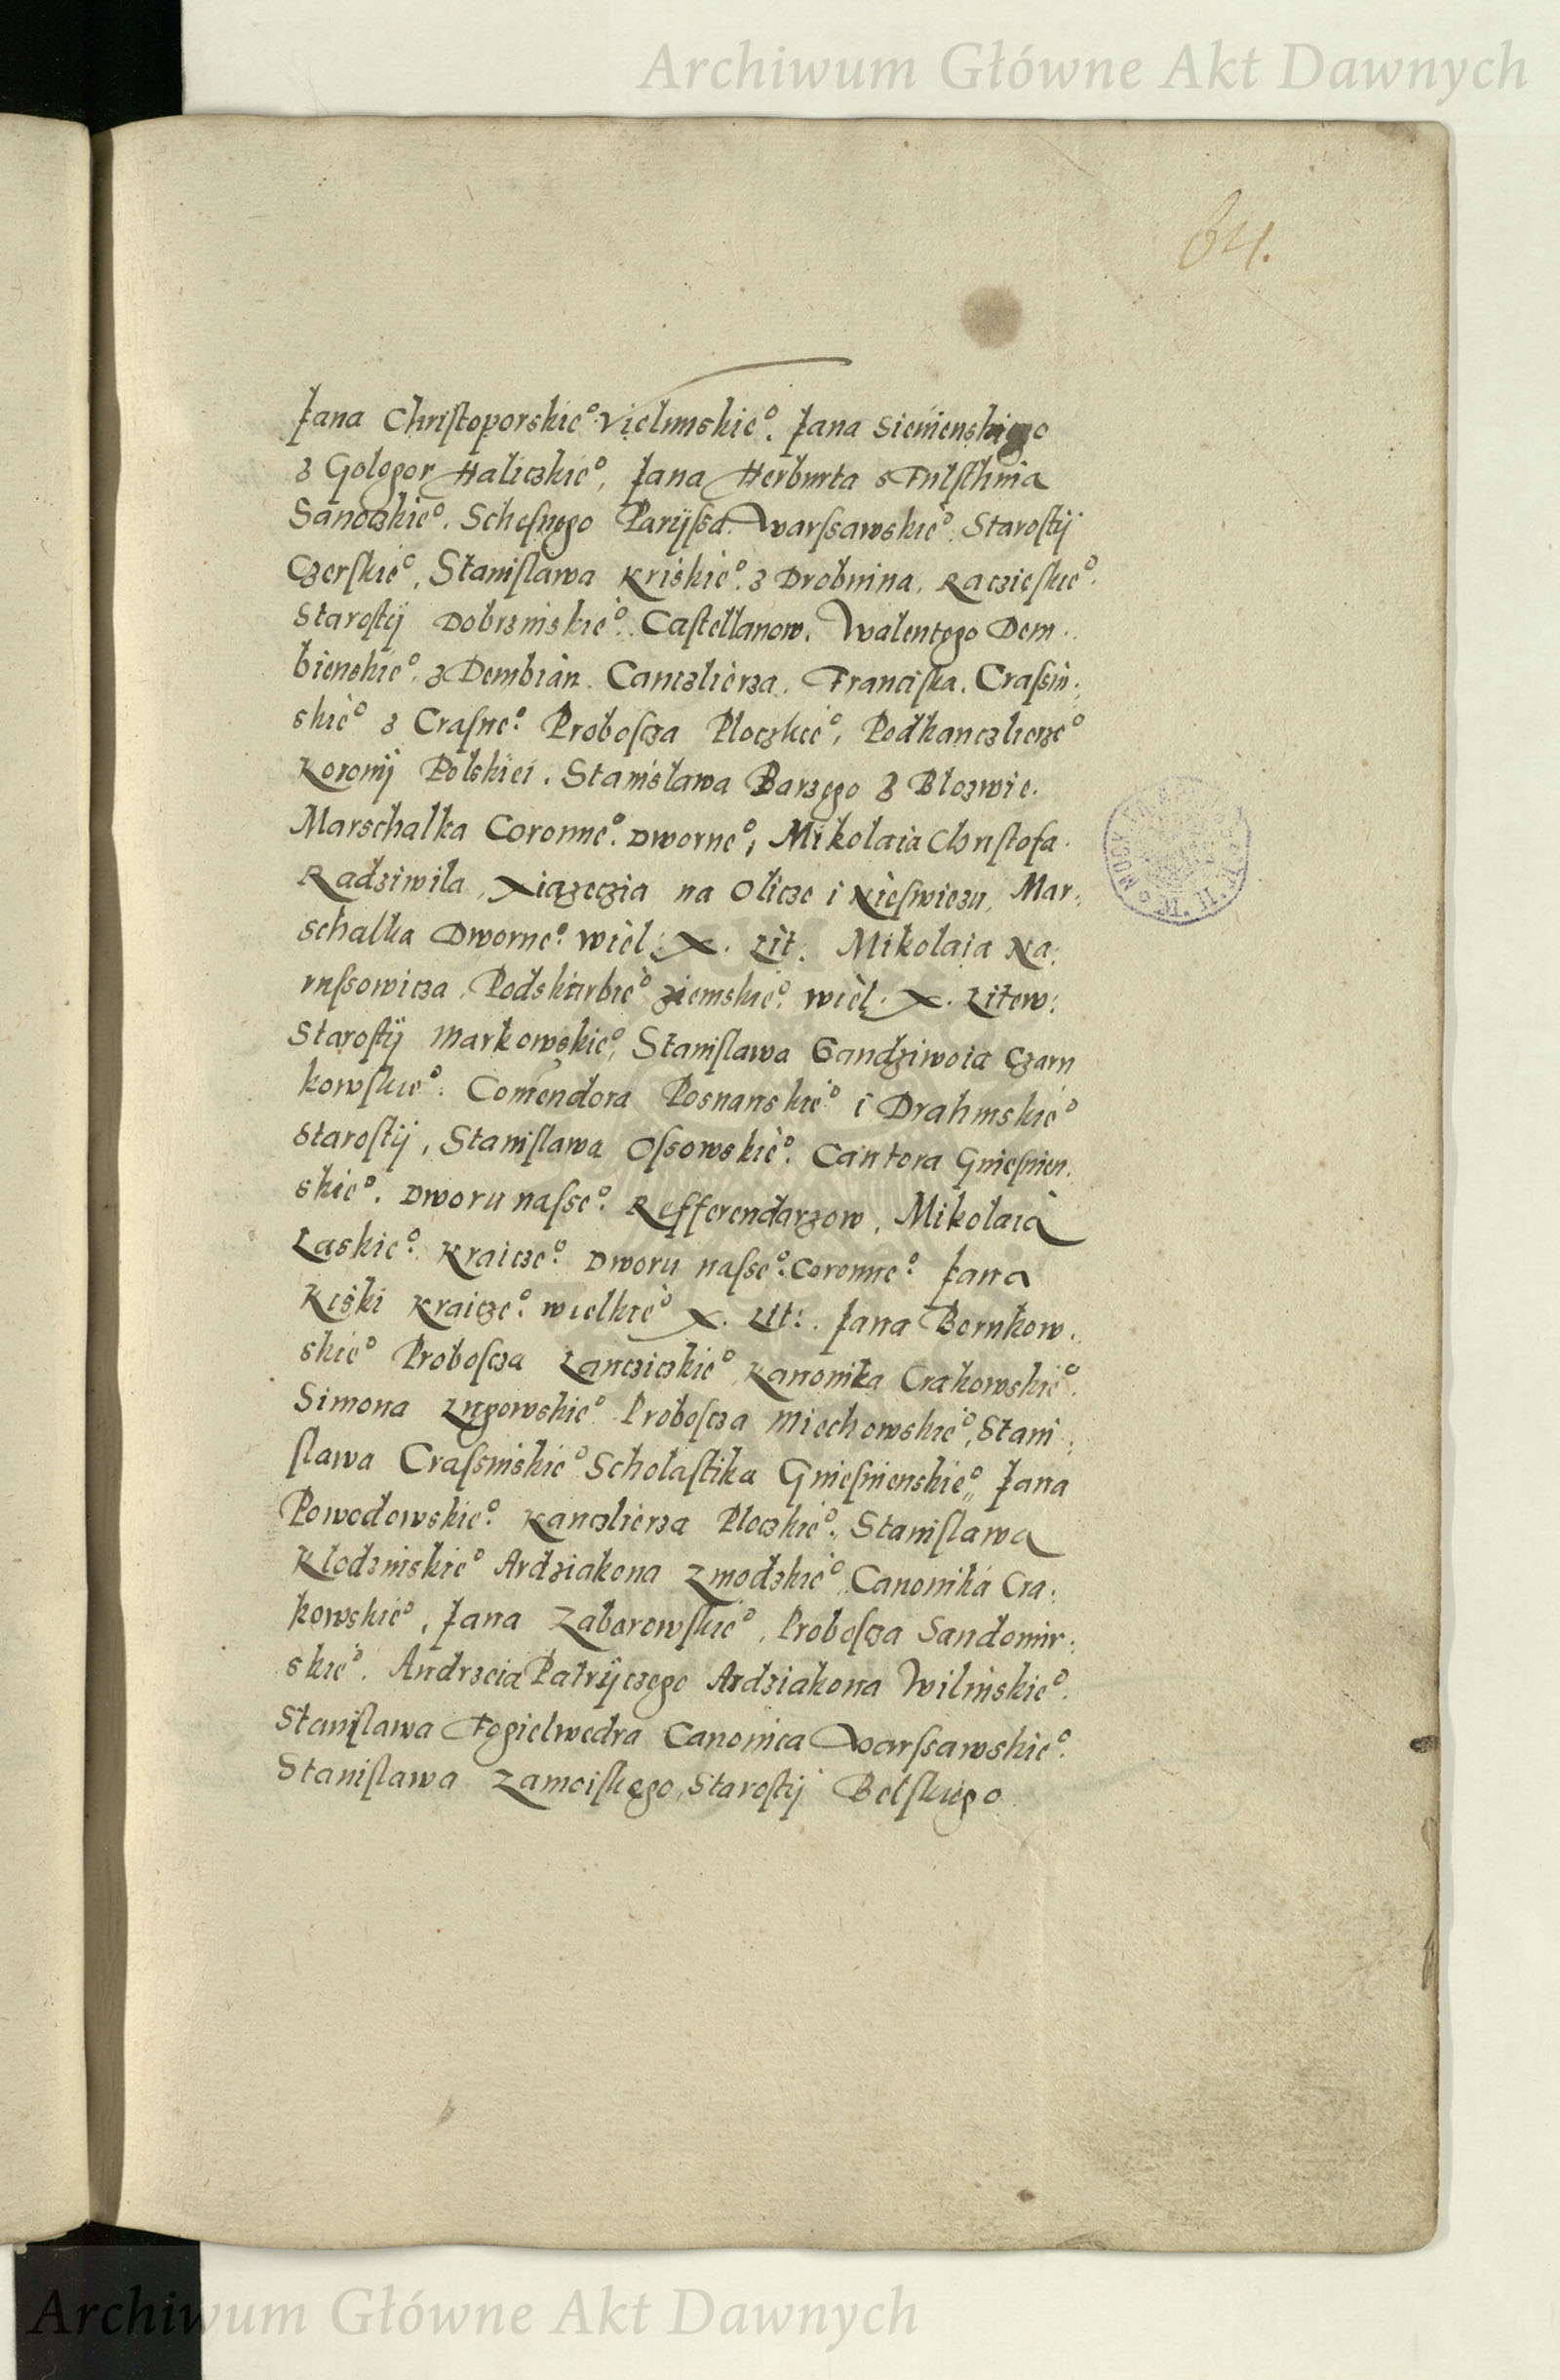 Archiwum Główne Akt Dawnych
64.
Jana Christoporskie° Vielunskie°. Jana Siemienskiego
z Gologor Haliczkie°, Jana Herburta s Fulsthina
Sanoczkie°. Schesnego Parÿssa Warssawskie°. Starostÿ
Czerskie°, Stanislawa Kriskie°. z Drobnina. Raczieskie°.
Starostÿ Dobrzinskie°. Castellanow. Walentego Dem:
bienskie°. z Dembian. Canczlierza. Franciska. Crassin:
skie° z Crasne°. Proboscza Ploczkie°, Podkanczlierze°
Koronÿ Polskiei. Stanislawa Barzego z Blozwie.
Marschalka Coronne°. Dworne°, Mikolaia Christofa.
Radziwila, Xiązeczia na Olicze i Nieswiezu, Mar:
schalka Dworne°. Wiel: X. Lit. Mikolaia Na:
russowicza. Podskarbie° ziemskie°. wiel. X. Litew:
Starostÿ Markowskie°, Stanislawa Sandziwoia Czarn
kowskie°. Comendora Posnanskie° i Drahimskie°
Starostÿ, Stanislawa Ossowskie°. Cantora Gniesnien.
skie°. Dworu nasse°. Refferendarzow, Mikolaia
Laskie°. Kraicze°. Dworu nasse°. Coronne°. Jana
Kiski Kraicze°. wielkie° X. Lit:. Jana Bornkow.
skie° Proboscza Lancziczkie° Kanonika Crakowskie°.
Simona Lugowskie° Proboscza Miechowskie°, Stani:
slawa Crassinskie° Scholastika Gniesnienskie°, Jana
Powodowskie°. Kanclierza Ploczkie°. Stanislawa
Klodzinskie° Ardziakona Zmodzkie° Canonika Cra:
kowskie°, Jana Zaborowskie°, Proboscza Sandomir:
skie°. Andrzeia Patrÿczego Ardziakona Wilinskie°.
Stanislawa Fogielwedra Canonica Warssawskie°.
Stanislawa Zamoiskego, Starostÿ Belskiego
Archiwum Główne Akt Dawnych